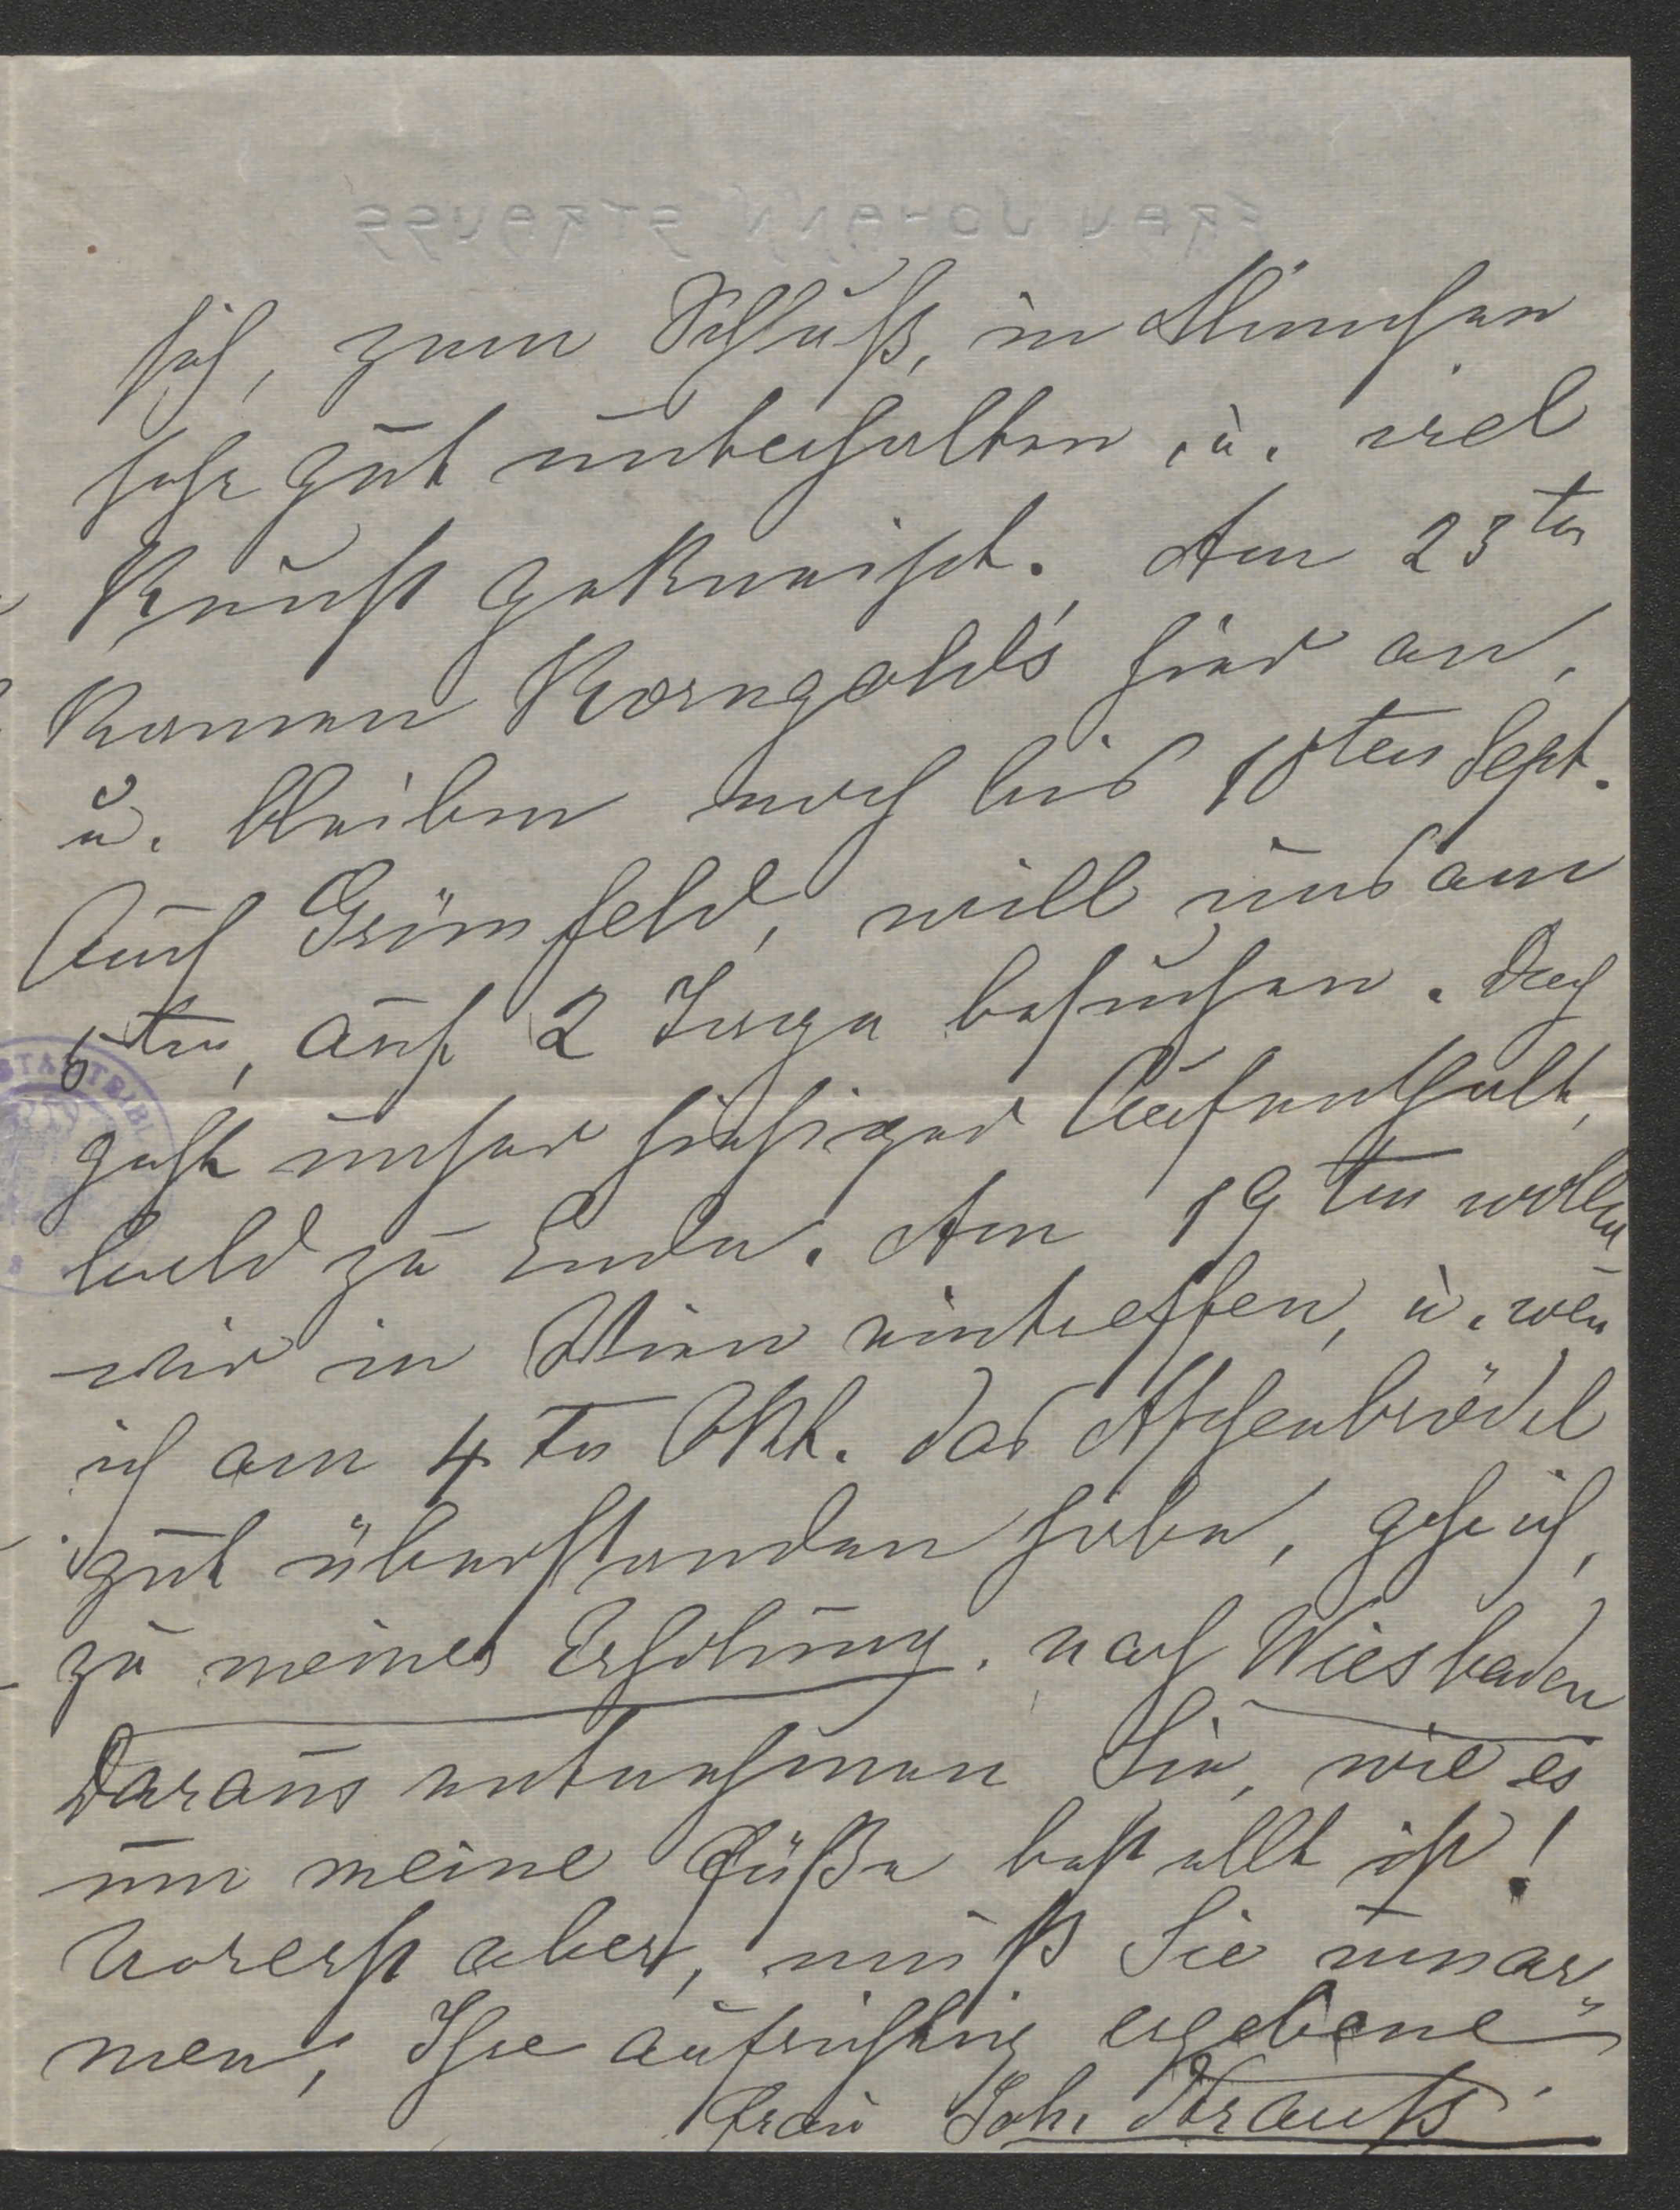 FRAU JOHANN STRAUSS
sich, zum Schluß, in München
sehr gut unterhalten, u. viel
Kunst gekneipt. Am 23ten
kamen Korngold's hier an,
u. bleiben noch bis 10ten Sept.
Auch Grünfeld, will uns am
5ten, auf 2 Tage besuchen. Doch
geht unser hiesiger Aufenthalt,
bald zu Ende. Am 19ten wollen
wir in Wien eintreffen, u. weñ
ich am 4ten Okt. das Aschenbrödel
gut überstanden habe, gehe ich,
zu meiner Erholung, nach Wiesbaden
Daraus entnehmen Sie, wie es
um meine Füße bestellt ist!
Vorerst aber, muß Sie umar-
men, Ihre aufrichtig ergebene
Frau Joh. Strauß